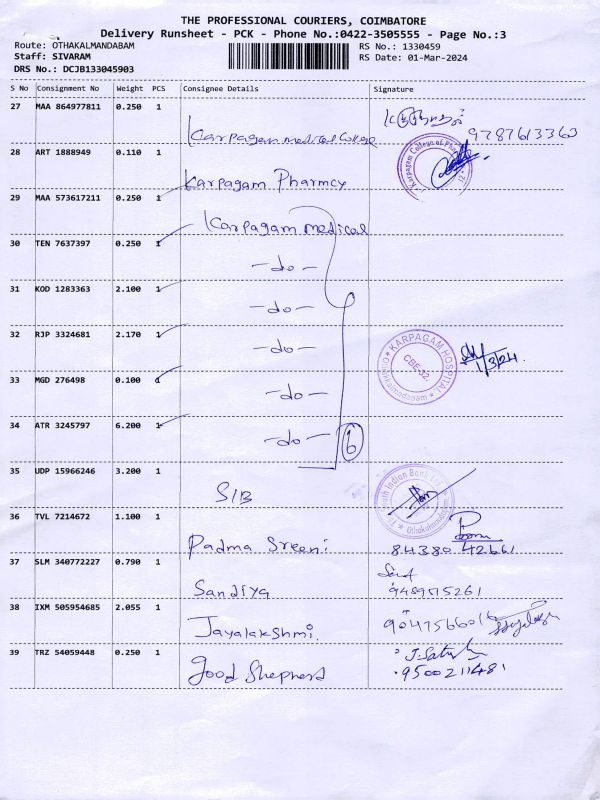 THE PROFESSIONAL COURIERS, COIMBATORE
Delivery Runsheet - PCK - Phone No.:0422-3505555 - Page No.:3
Route: OTHAKALMANDABAM RS No.: 1330459
Staff: SIVARAM RS Date: 01-Mar-2024
DRS No.: DCJB133045903
S No Consignment No Weight PCS Consignee Details Signature
27 MAA 864977811 0.250 1 Karpagam medical College 9787613363
28 ART 1888949 0.110 1 Karpagam Pharmcy Karpagam College of
29 MAA 573617211 0.250 1 Karpagam medical
30 TEN 7637397 0.250 1 -do-
31 KOD 1283363 2.100 1 -do-
32 RJP 3324681 2.170 1 -do- KARPAGAM HOSPITAL CBE-32. Othakalmandapam 1/3/24.
33 MGD 276498 0.100 1 -do-
34 ATR 3245797 6.200 1 -do- 6
35 UDP 15966246 3.200 1 SIB The South Indian Bank Ltd Othakalmandapam
36 TVL 7214672 1.100 1 Padma Sreeni 84380 42661
37 SLM 340772227 0.790 1 Sandiya 9489515261
38 IXM 505954685 2.055 1 Jayalakshmi.
39 TRZ 54059448 0.250 1 Good Shepherd 9500211481